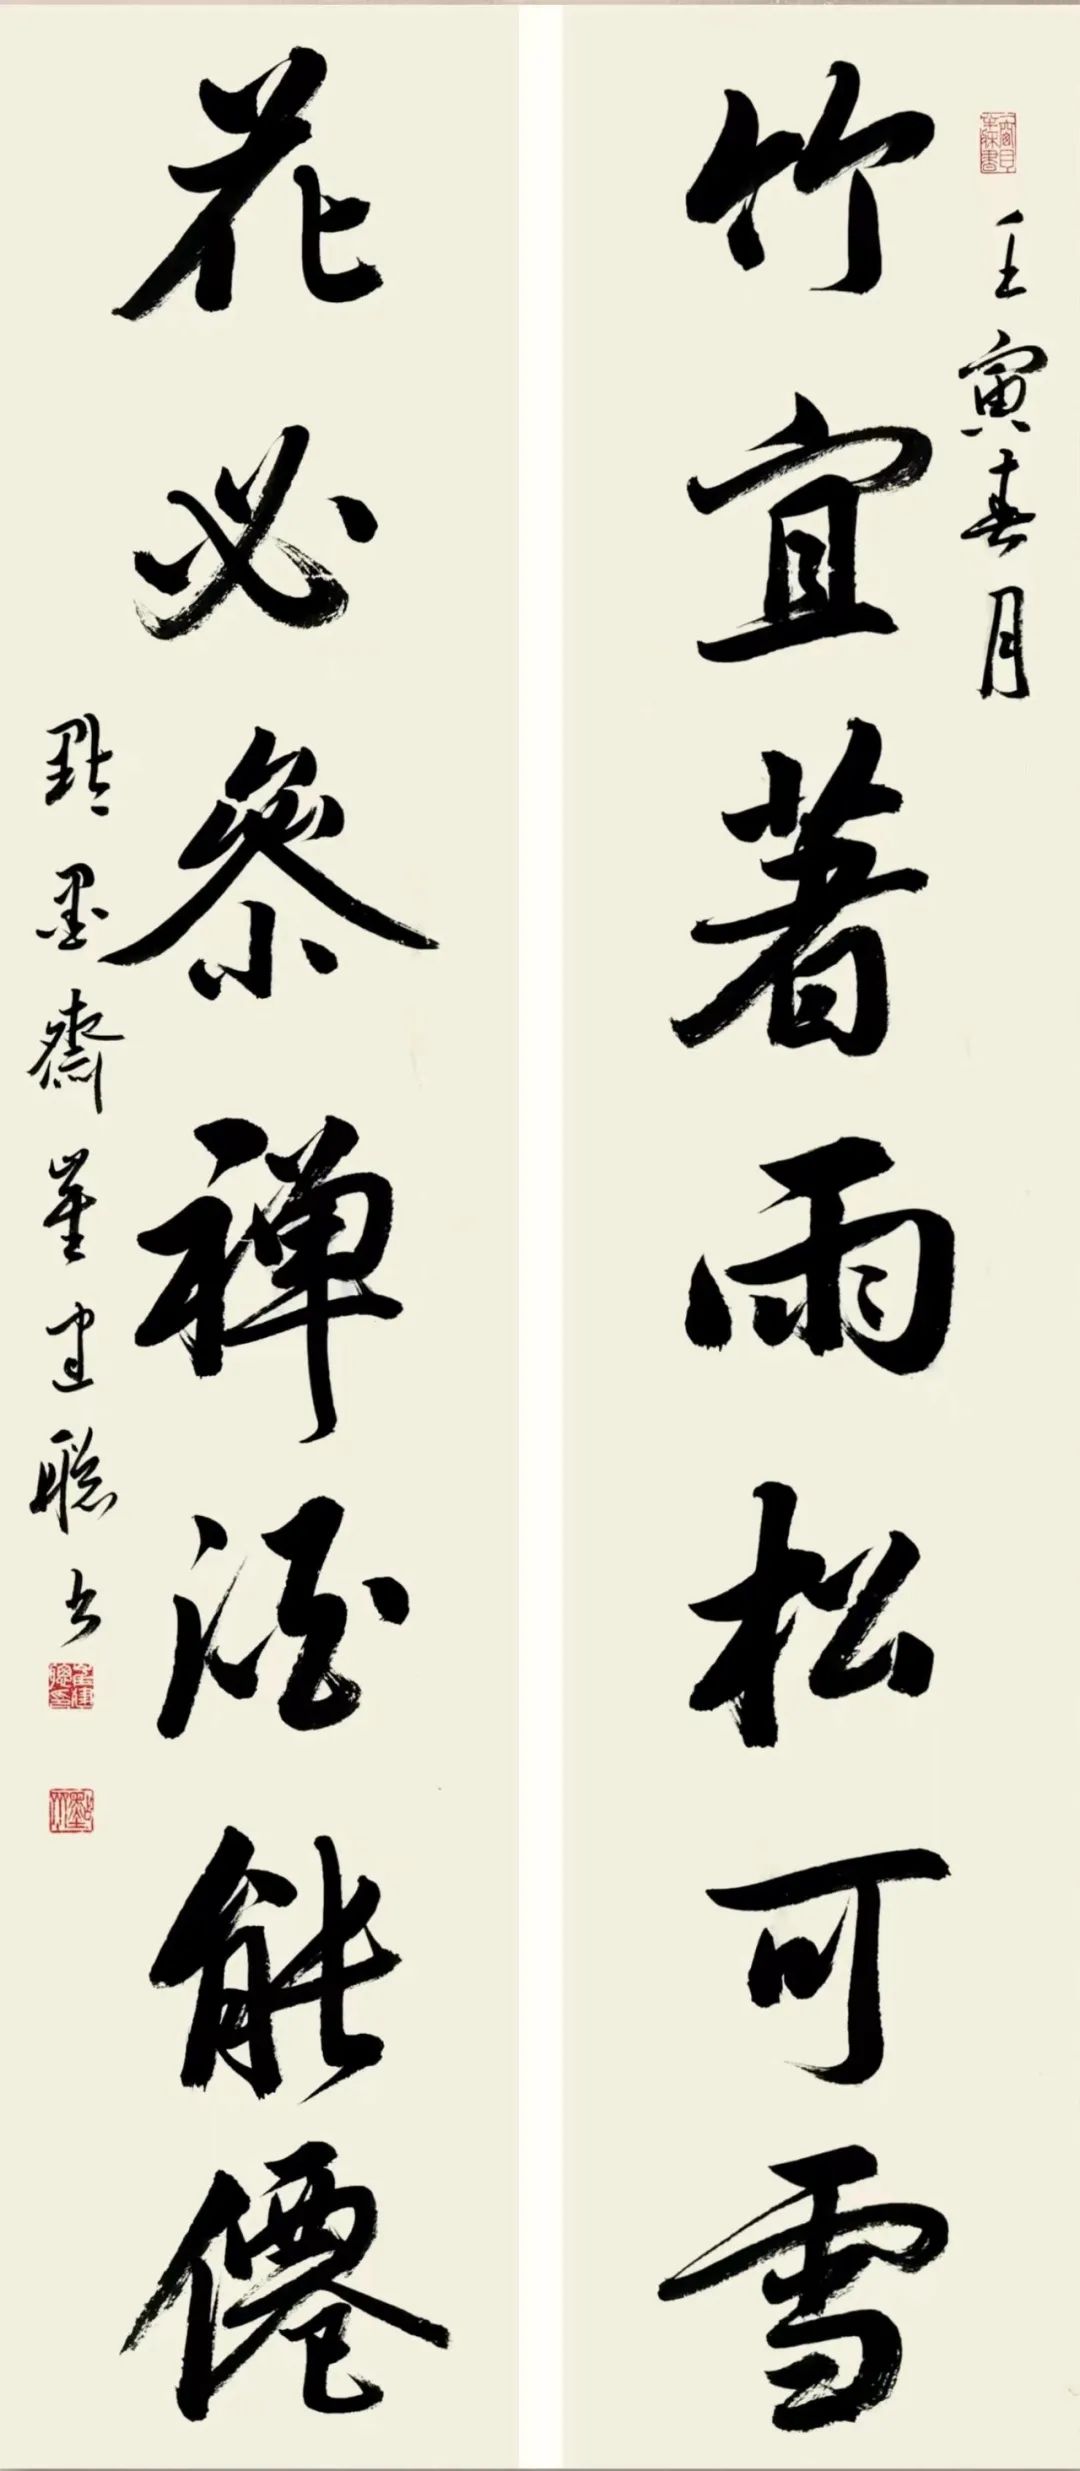 壬寅春月
竹宜著雨松可雪
花必參禪酒能僊
點墨齋崔建聰書